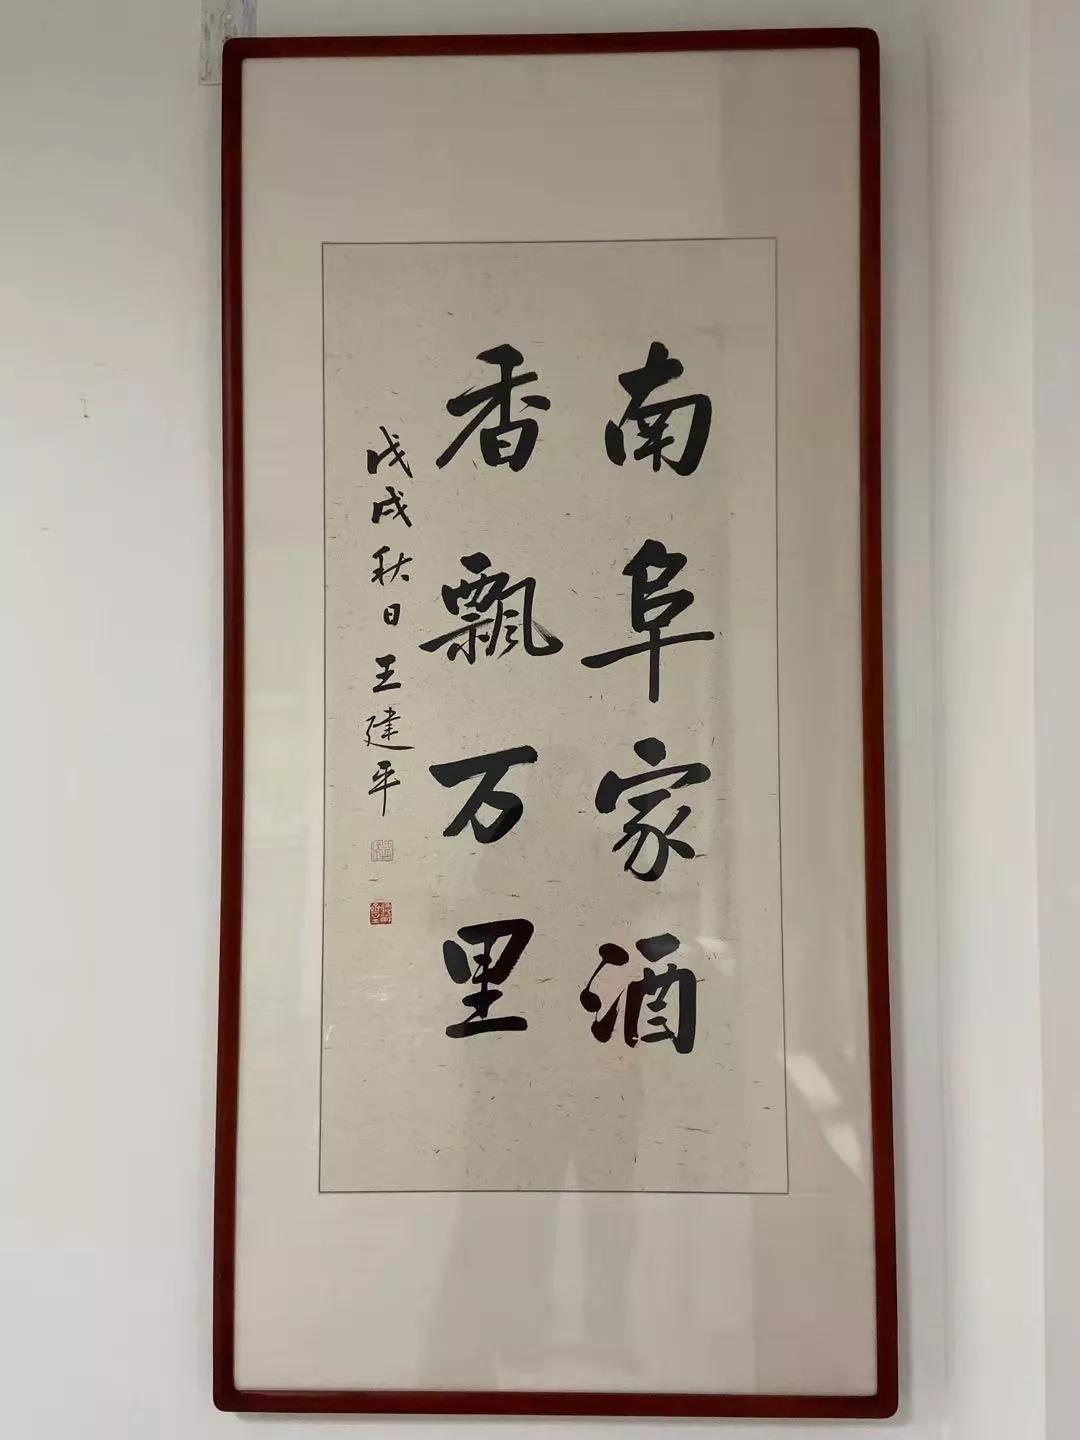 南阜家酒
香飘万里
戊戌秋日王建平